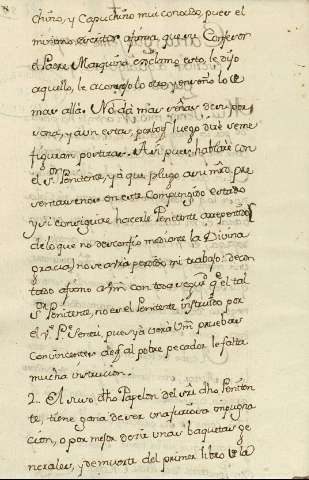 chino, y Capuchino mui conocido, pues el
mismo escritor afirma, que su Confesor
el Padre Marquina en claro esto, le dijo
aquello, le aconsejo lo otro, y enseño lo
mas alla. No dà mas señas de su per
sona, y aun estas, por lo que luego diré se me
figuran postizas. Asi pues hablaré con
el Sr. Penitente, ya que plugo a su mrd. pre
sentarse nos en este Compungido estado
y si consiguiere hacerle Penitente arrepentido,
de lo que no desconfio mediante la Divina
gracia, no se avrá perdido mi trabajo: de con
tado afirmo a Vm. con toda seguridad que el tal
Sr. Penitente, no es el Penitente instruido por
el Pe. Señeri, pues ya verá Vm. pruebas
convincentes de que al pobre pecador le falta
mucha instruccion.
2. El suso dho Papelon del susodho Peniten
te, tiene gana de ver una furiosa impugna
cion, o por mejor decir unas baquetas ge
nerales, y de muerte del primer libro de la